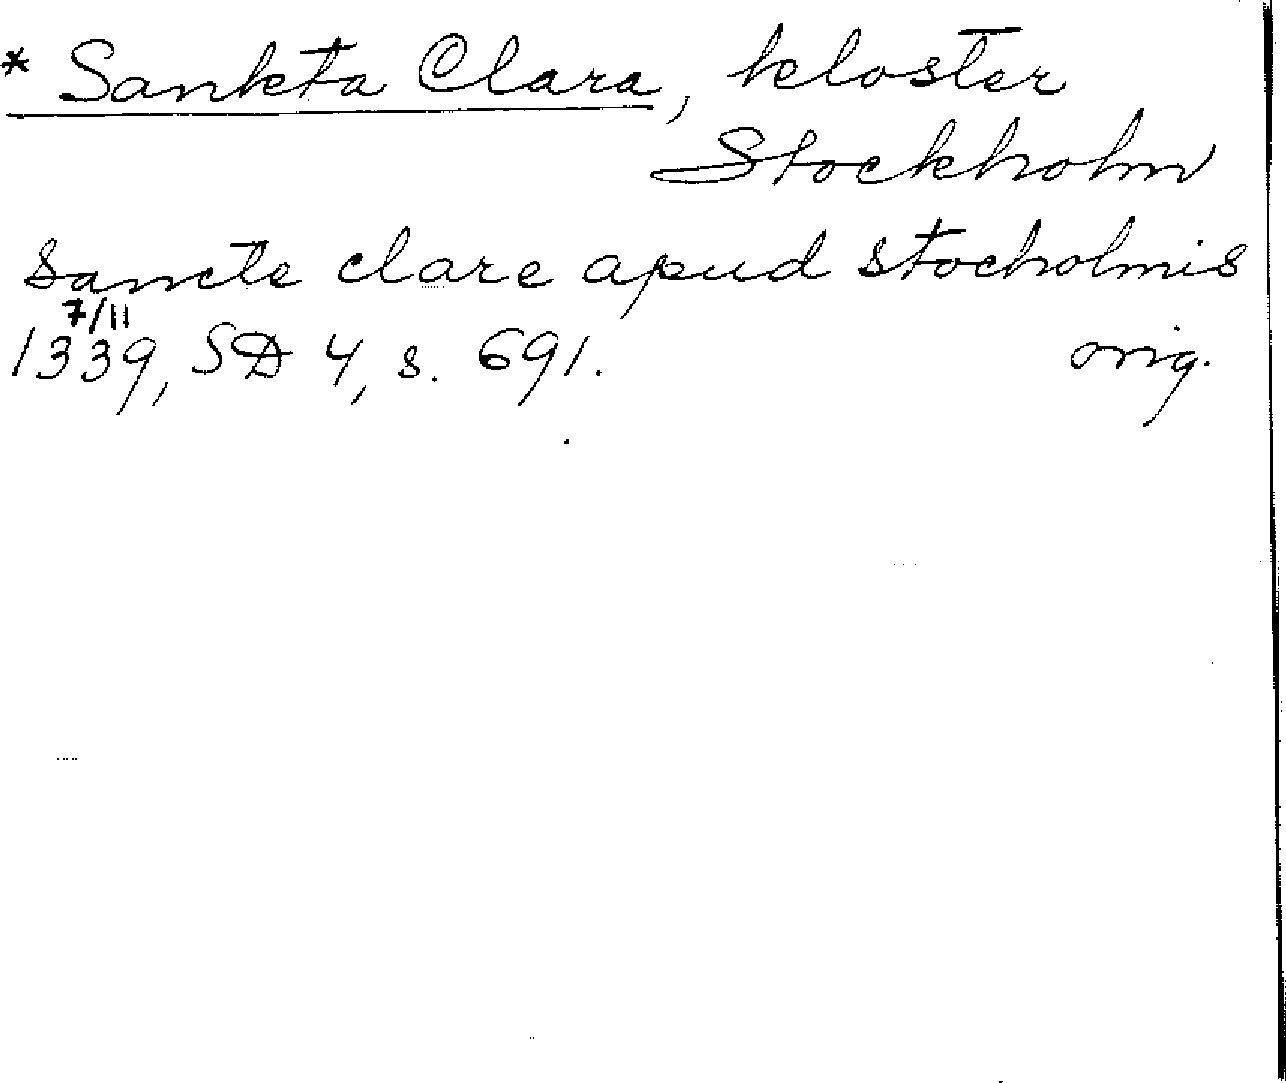 * Sankta Clara, kloster
Stockholm
sancte clare apud stocholmis
7/11
1339, SD 4, s. 691. orig.